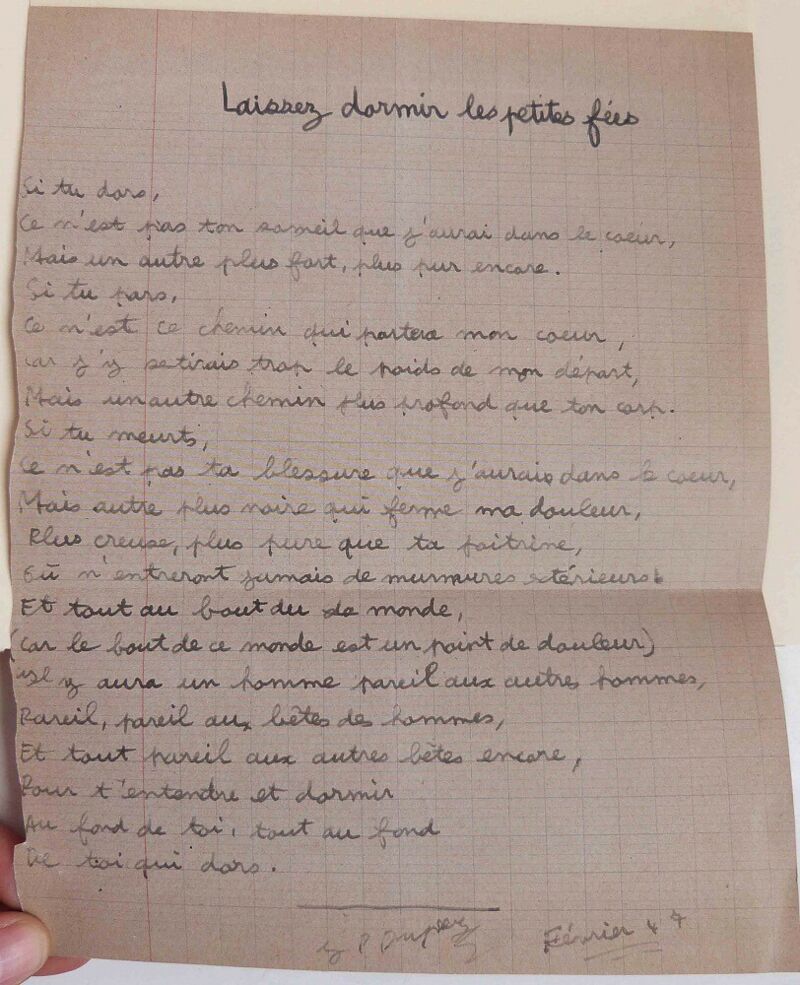 Laissez dormir les petites fées
Si tu dors,
Ce n'est pas ton someil que j'aurai dans le coeur,
Mais un autre plus fort, plus pur encore.
Si tu pars,
Ce n'est ce chemin qui portera mon coeur,
car j'y setirais trop le poids de mon départ,
Mais un autre chemin plus profond que ton corp.
Si tu meurts,
Ce n'est pas ta blessure que j'aurais dans le coeur,
Mais autre plus noire qui ferme ma douleur,
Plus creuse, plus pure que ta poitrine,
Où n'entreront jamais de murmures extérieurs
Et tout au bout du monde,
(car le bout de ce monde est un point de douleur)
Il y aura un homme pareil aux autres hommes,
Pareil, pareil aux bêtes des hommes,
Et tout pareil aux autres bêtes encore,
Pour t'entendre et dormir
Au fond de toi, tout au fond
De toi qui dors.
Février 47